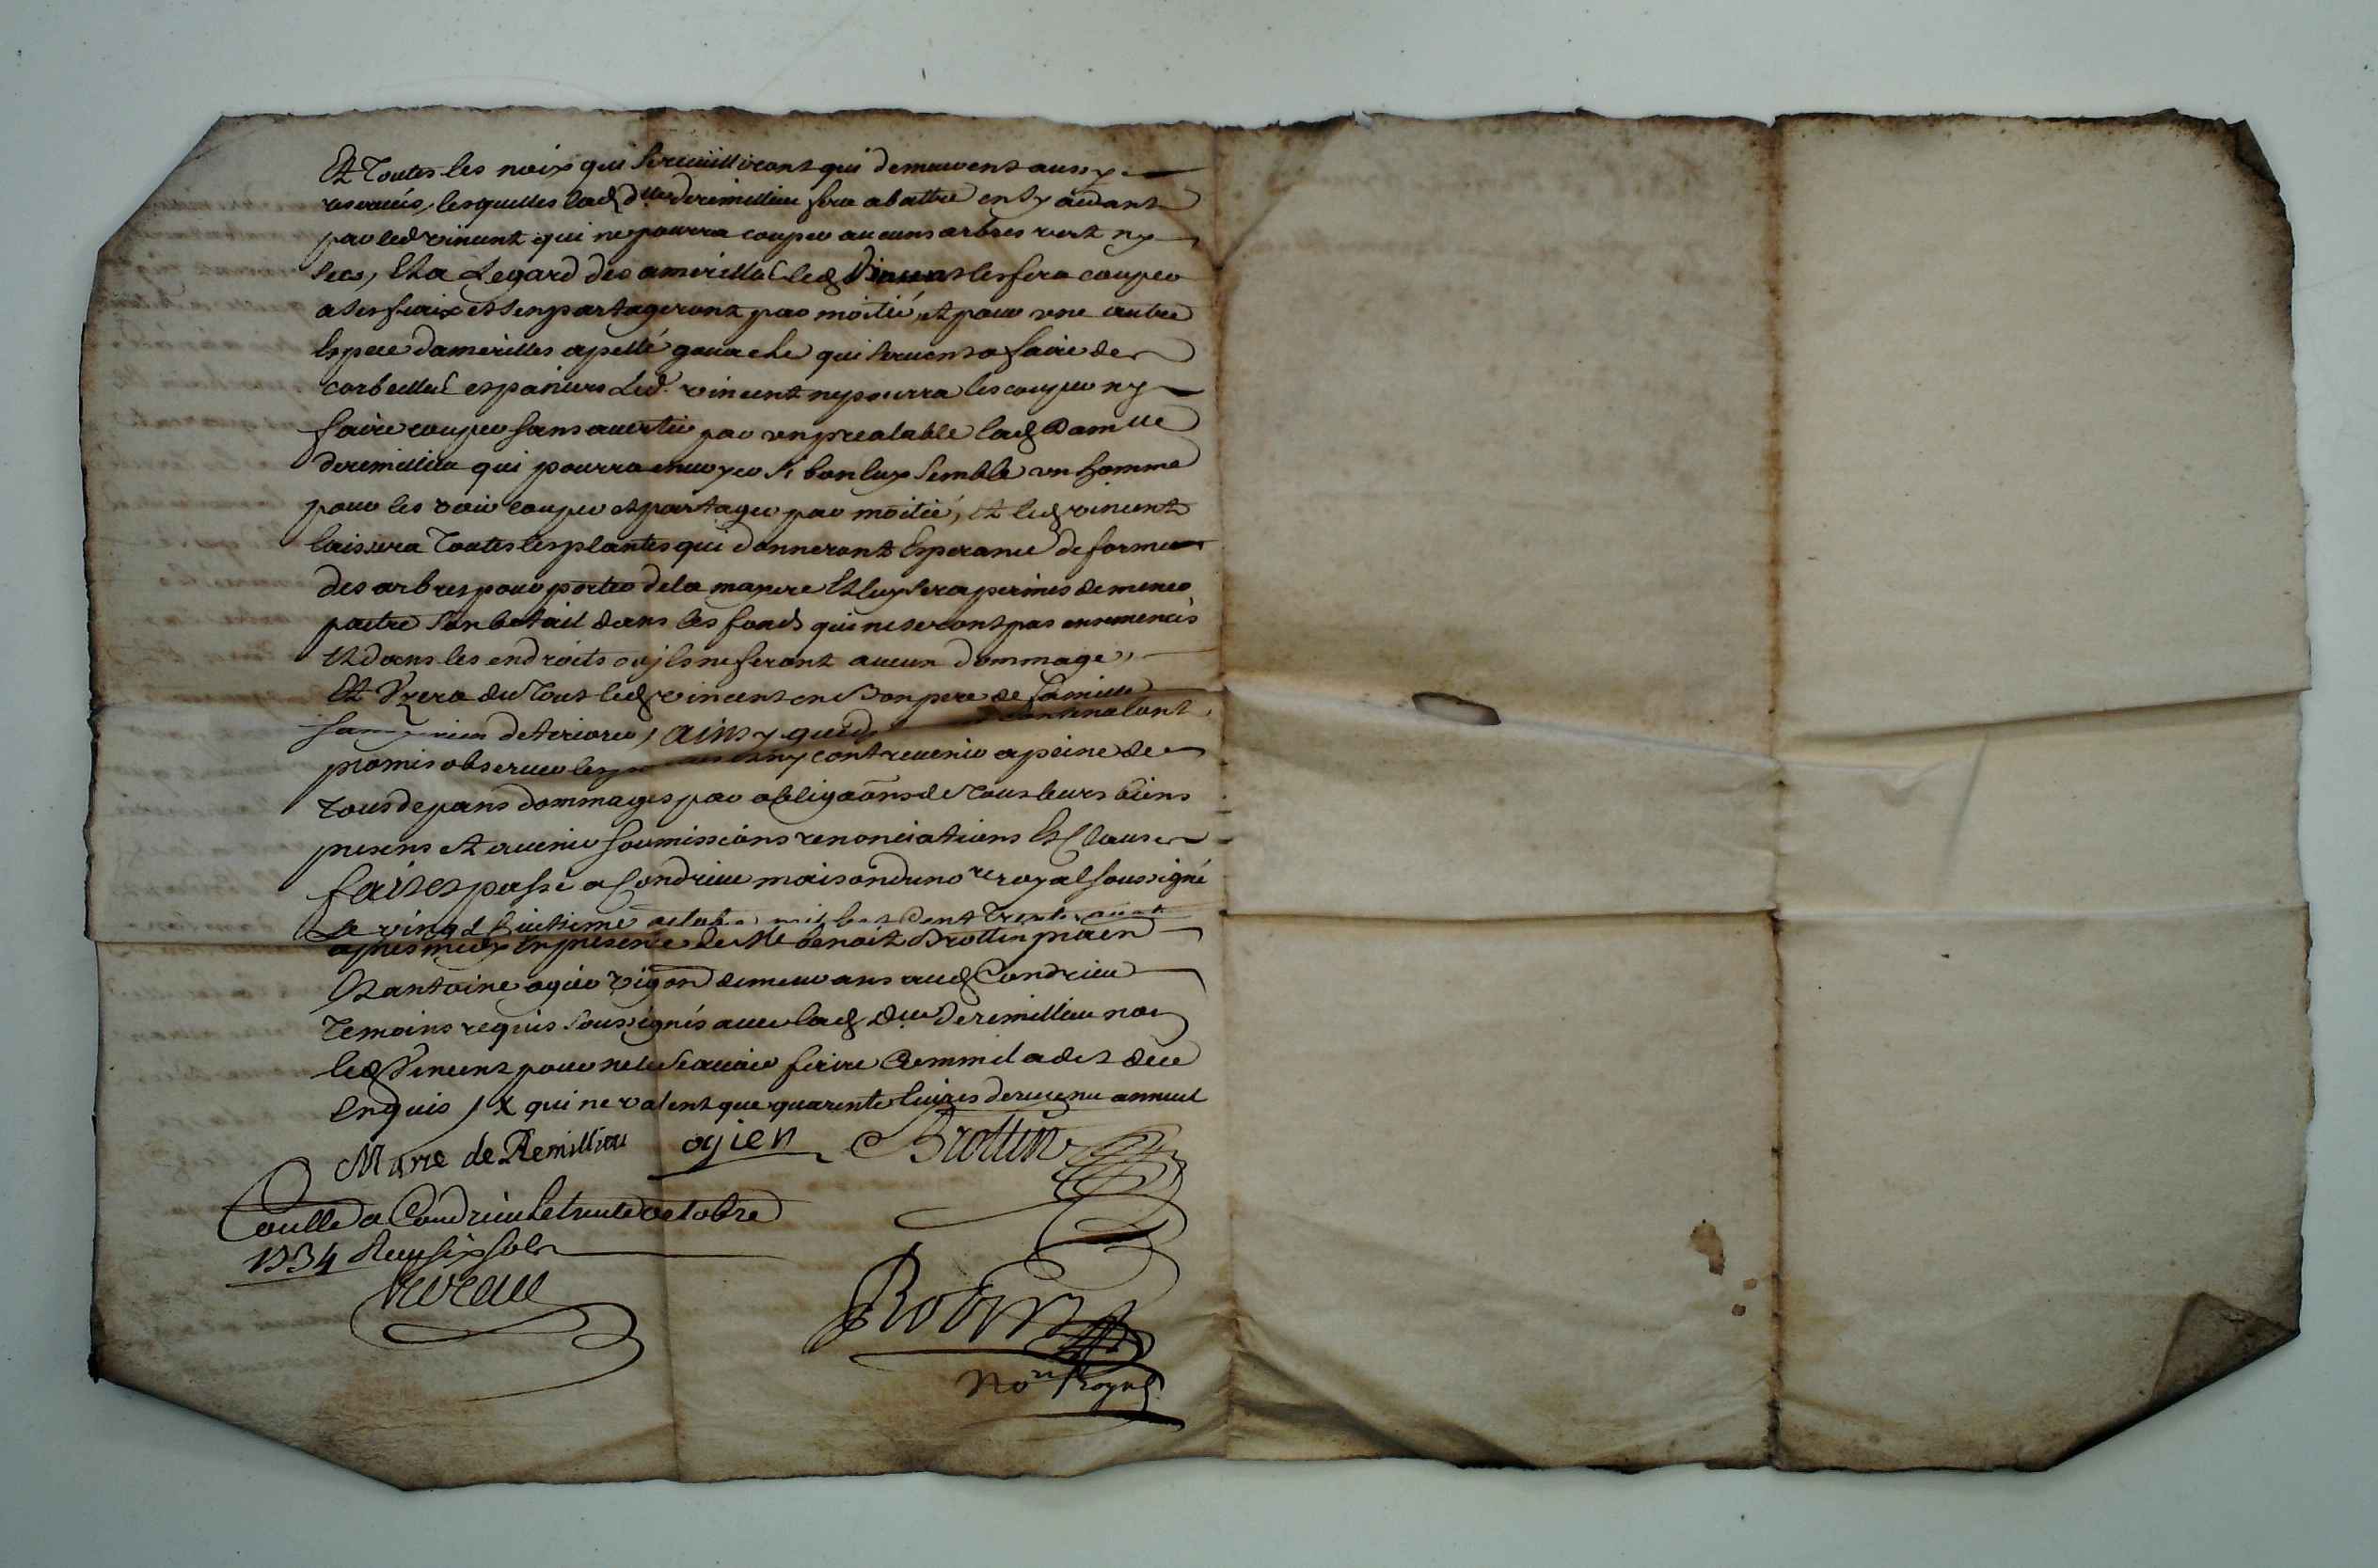 Et Toutes les noix qui Serecuilliront qui demeurent aussy
reservées, lesquelles lad. dlle deremillieu fera abattre en sy aidant
par led vincent qui ne pourra couper aucuns arbres vert ny
secs, Et a Legard des amerilles led Vincent les fera couper
a ses fraix et senpartageront par moitié, et pour une autre
Espece damerilles apellé gouache qui servent a faire des
corbeilles et paniers Led. vincent ny pourra les couper ny
faire couper sans avertir par un prealable lad Damlle
deremillieu qui pourra envoyer si bon luy Semble un homme
pour les voir couper et partager par moitié, et led vincent
laissera Toutes les plantes qui donneront Esperance de former
des arbres pour porter de la mayere Et luy sera permis de mener
paitre Son betail dans les fonds qui ne seront pas ensemencés
Et dans les endroits ou jls ne feront aucun dommage,
Et Vzera du Tout led vincent en Bon pere de famille
sans rien deteriorer, ainsy
promis observer ny contrevenir a peine de
Tous depans dommages par obligaōns de Tous leurs biens
presens et avenir soumissions renonciations Et Clauses
fait et passé a Condrieu maison du nore royal soussigné
Le vingt huitieme octobre mil sept Cent Trente
apres midy En presence de Me benoit Brottin praen
Et antoine ogier vigon demeurans aud Condrieu
Temoins requis soussignés avec lad Dlle deremillieu non
led Vincent pour ne le Scavoir Ecrire Comm il a dit de ce
Enquis / X qui ne valent que quarente livres de revenu annuel
Marie de Remillieu ogien Brottin
Coullé a Condrieu le trente octobre
1734 Reçu six sols
Robin
Nore Royal